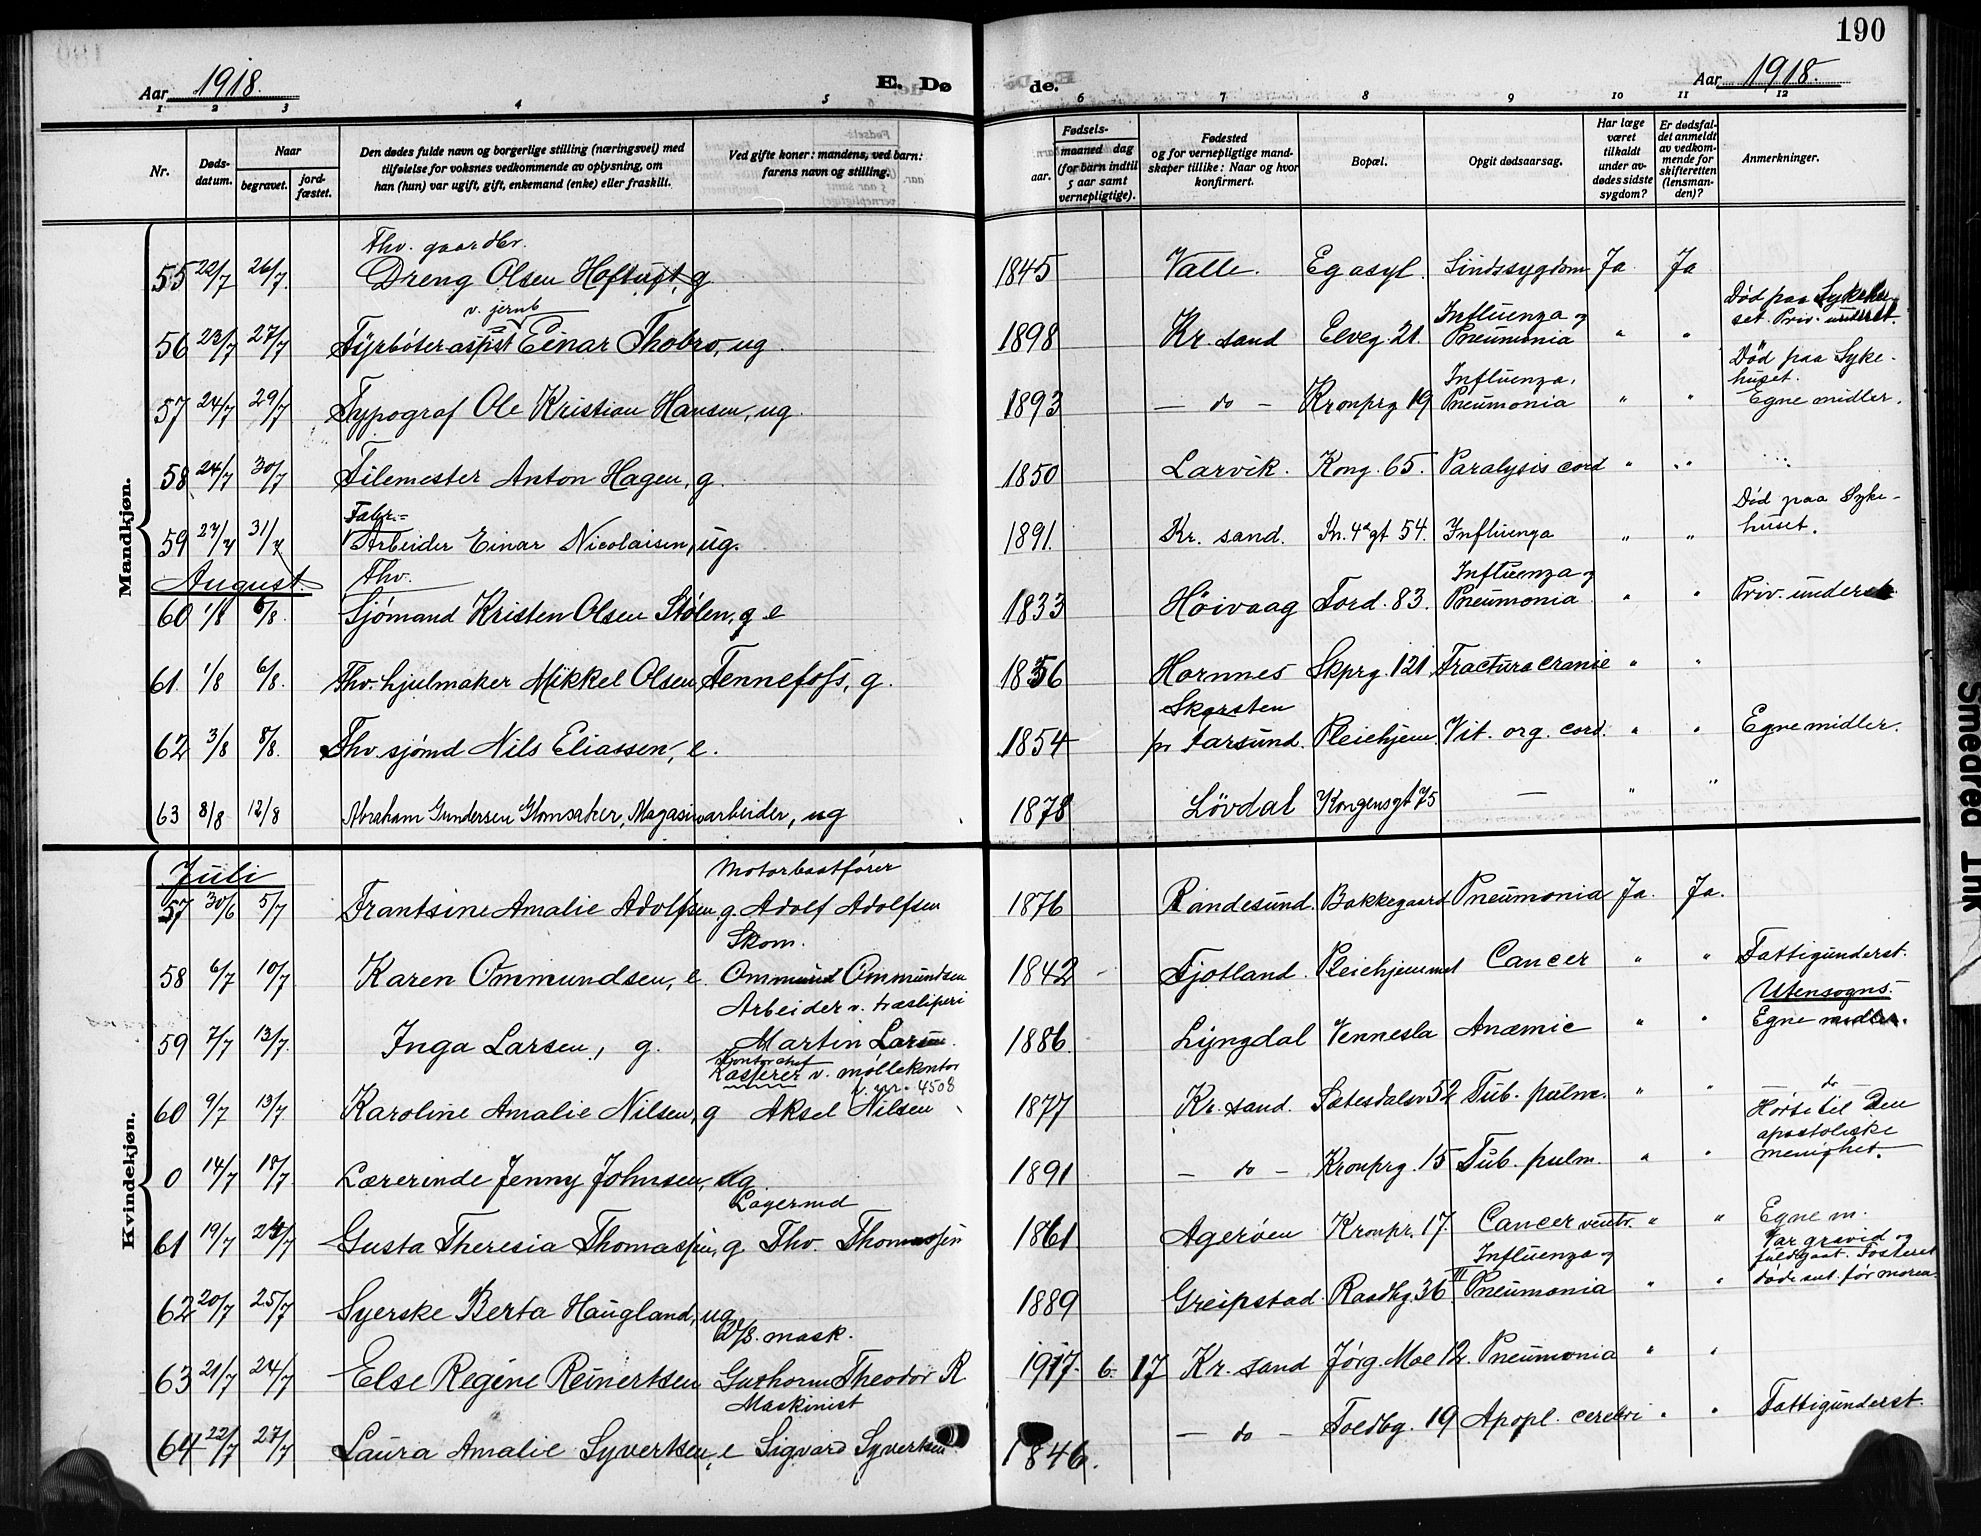 190
Aar 1918.
E. Dø
de.
Aar 1918.
1 2 3 4 5 6 7 8 9 10 11 12
Nr.
Døds-
datum.
Naar
begravet.
jord-
fæstet.
Den dødes fulde navn og borgerlige stilling (næringsvei) med
tilføielse for voksnes vedkommende av oplysning, om
han (hun) var ugift, gift, enkemand (enke) eller fraskilt.
Ved gifte koner: mandens, ved barn:
farens navn og stilling.
Fødsels-
aar.
maaned dag
(for barn indtil
5 aar samt
vernepligtige).
Fødested
og for vernepligtige mand-
skaper tillike: Naar og hvor
konfirmert.
Bopæl.
Opgit dødsaarsag.
Har læge
været
tilkaldt
under av-
dødes sidste
sygdom?
Er dødsfal-
det anmeldt
av vedkom-
mende for
skifteretten
(lensman-
den)?
Anmerkninger.
Mandkjøn.
Fhv. gaardbr.
55 22/7 26/7 Dreng Olsen Hoftuft, g 1845 Valle. Eg asyl. Sindssygdom Ja Ja
v. jernb
Influenza og
Død paa Sykehu-
set. Priv. underst.
56 23/7 27/7 Fyrbøteraspst Einar Thobro, ug 1898 Kr. sand Elveg. 21 Pneumonia " "
Influenza,
Død paa Syke-
huset.
57 24/7 29/7 Typograf Ole Kristian Hansen, ug. 1893 — do — Kronprg 19 Pneumonia " " Egne midler.
58 24/7 30/7 Filemester Anton Hagen, g. 1850 Larvik. Kong. 65. Paralysis cord " "
Fabr.=
Død paa Syke-
huset.
59 27/7 31/7 Arbeider Einar Nicolaisen, ug. 1891. Kr. sand. Kr. 4de gt 54. Influenza " "
August. Fhv.
Influenza og
60 1/8 6/8. Sjømand Kristen Olsen Stølen, g e 1833 Høivaag Tord. 83. Pneumonia " " Priv. underst.
61 1/8 6/8. Fhv. hjulmaker Mikkel Olsen Fennefoss, g. 1856 Hornnes Skprg. 121 Fractura cranie " "
Skarsten
62 3/8 8/8. Fhv. sjømd Nils Eliassen, e. 1854 pr Farsund. Pleiehjem. Vit. org. cord. " " Egne midler.
63 8/8 12/8 Abraham Gundersen Glomsaker, Magasinarbeider, ug 1878 Lövdal Kongensgt 75 — " "
Kvindekjøn.
Juli
Motorbaatfører
57 30/6 5/7 Frantsine Amalie Adolfsen g. Adolf Adolfsen 1876 Randesund. Bakkegaard Pneumonia Ja. Ja.
Skom.
58 6/7 10/7 Karen Ommundsen, e. Ommund Ommundsen 1842 Fjotland. Pleiehjemmet Cancer " " Fattigunderst.
Arbeider v. træsliperi
Utensogns.
59 7/7 13/7. Inga Larsen, g. Martin Larsen. 1886. Lyngdal Vennesla Anæmie " " Egne midler.
Kontorchef
Kasserer v. møllekontor
4508
60 9/7 13/7. Karoline Amalie Nilsen, g Aksel Nilsen 1877 Kr. sand. Sætesdalsv 52 Tub. pulm. " " — do —
Hørte til Den
apostoliske
menighet.
0 14/7 18/7 Lærerinde Jenny Johnsen, ug 1891 — do — Kronprg. 15 Tub. pulm. " "
Lagermd
61 19/7 24/7 Gusta Theresia Thomassen, g. Thv. Thomassen 1861 Agerøen Kronpr. 17. Cancer ventr. " " Egne m.
Influenza og
Var gravid og
fuldgaat. Fosteret
døde ant. før moren.
62 20/7 25/7 Syerske Berta Haugland, ug 1889 Greipstad Raadhg. 36 III Pneumonia " "
D/S. mask.
63 21/7 24/7 Else Regine Reinertsen Guthorm Theodor R 1917. 6. 17 Kr. sand Jørg. Moe 12. Pneumonia " "
Maskinist
64 22/7 27/7 Laura Amalie Syvertsen, e Sigvard Syvertsen 1846. — do — Toldbg. 19 Apopl. cerebri " " Fattigunderst.
Smeared Ink